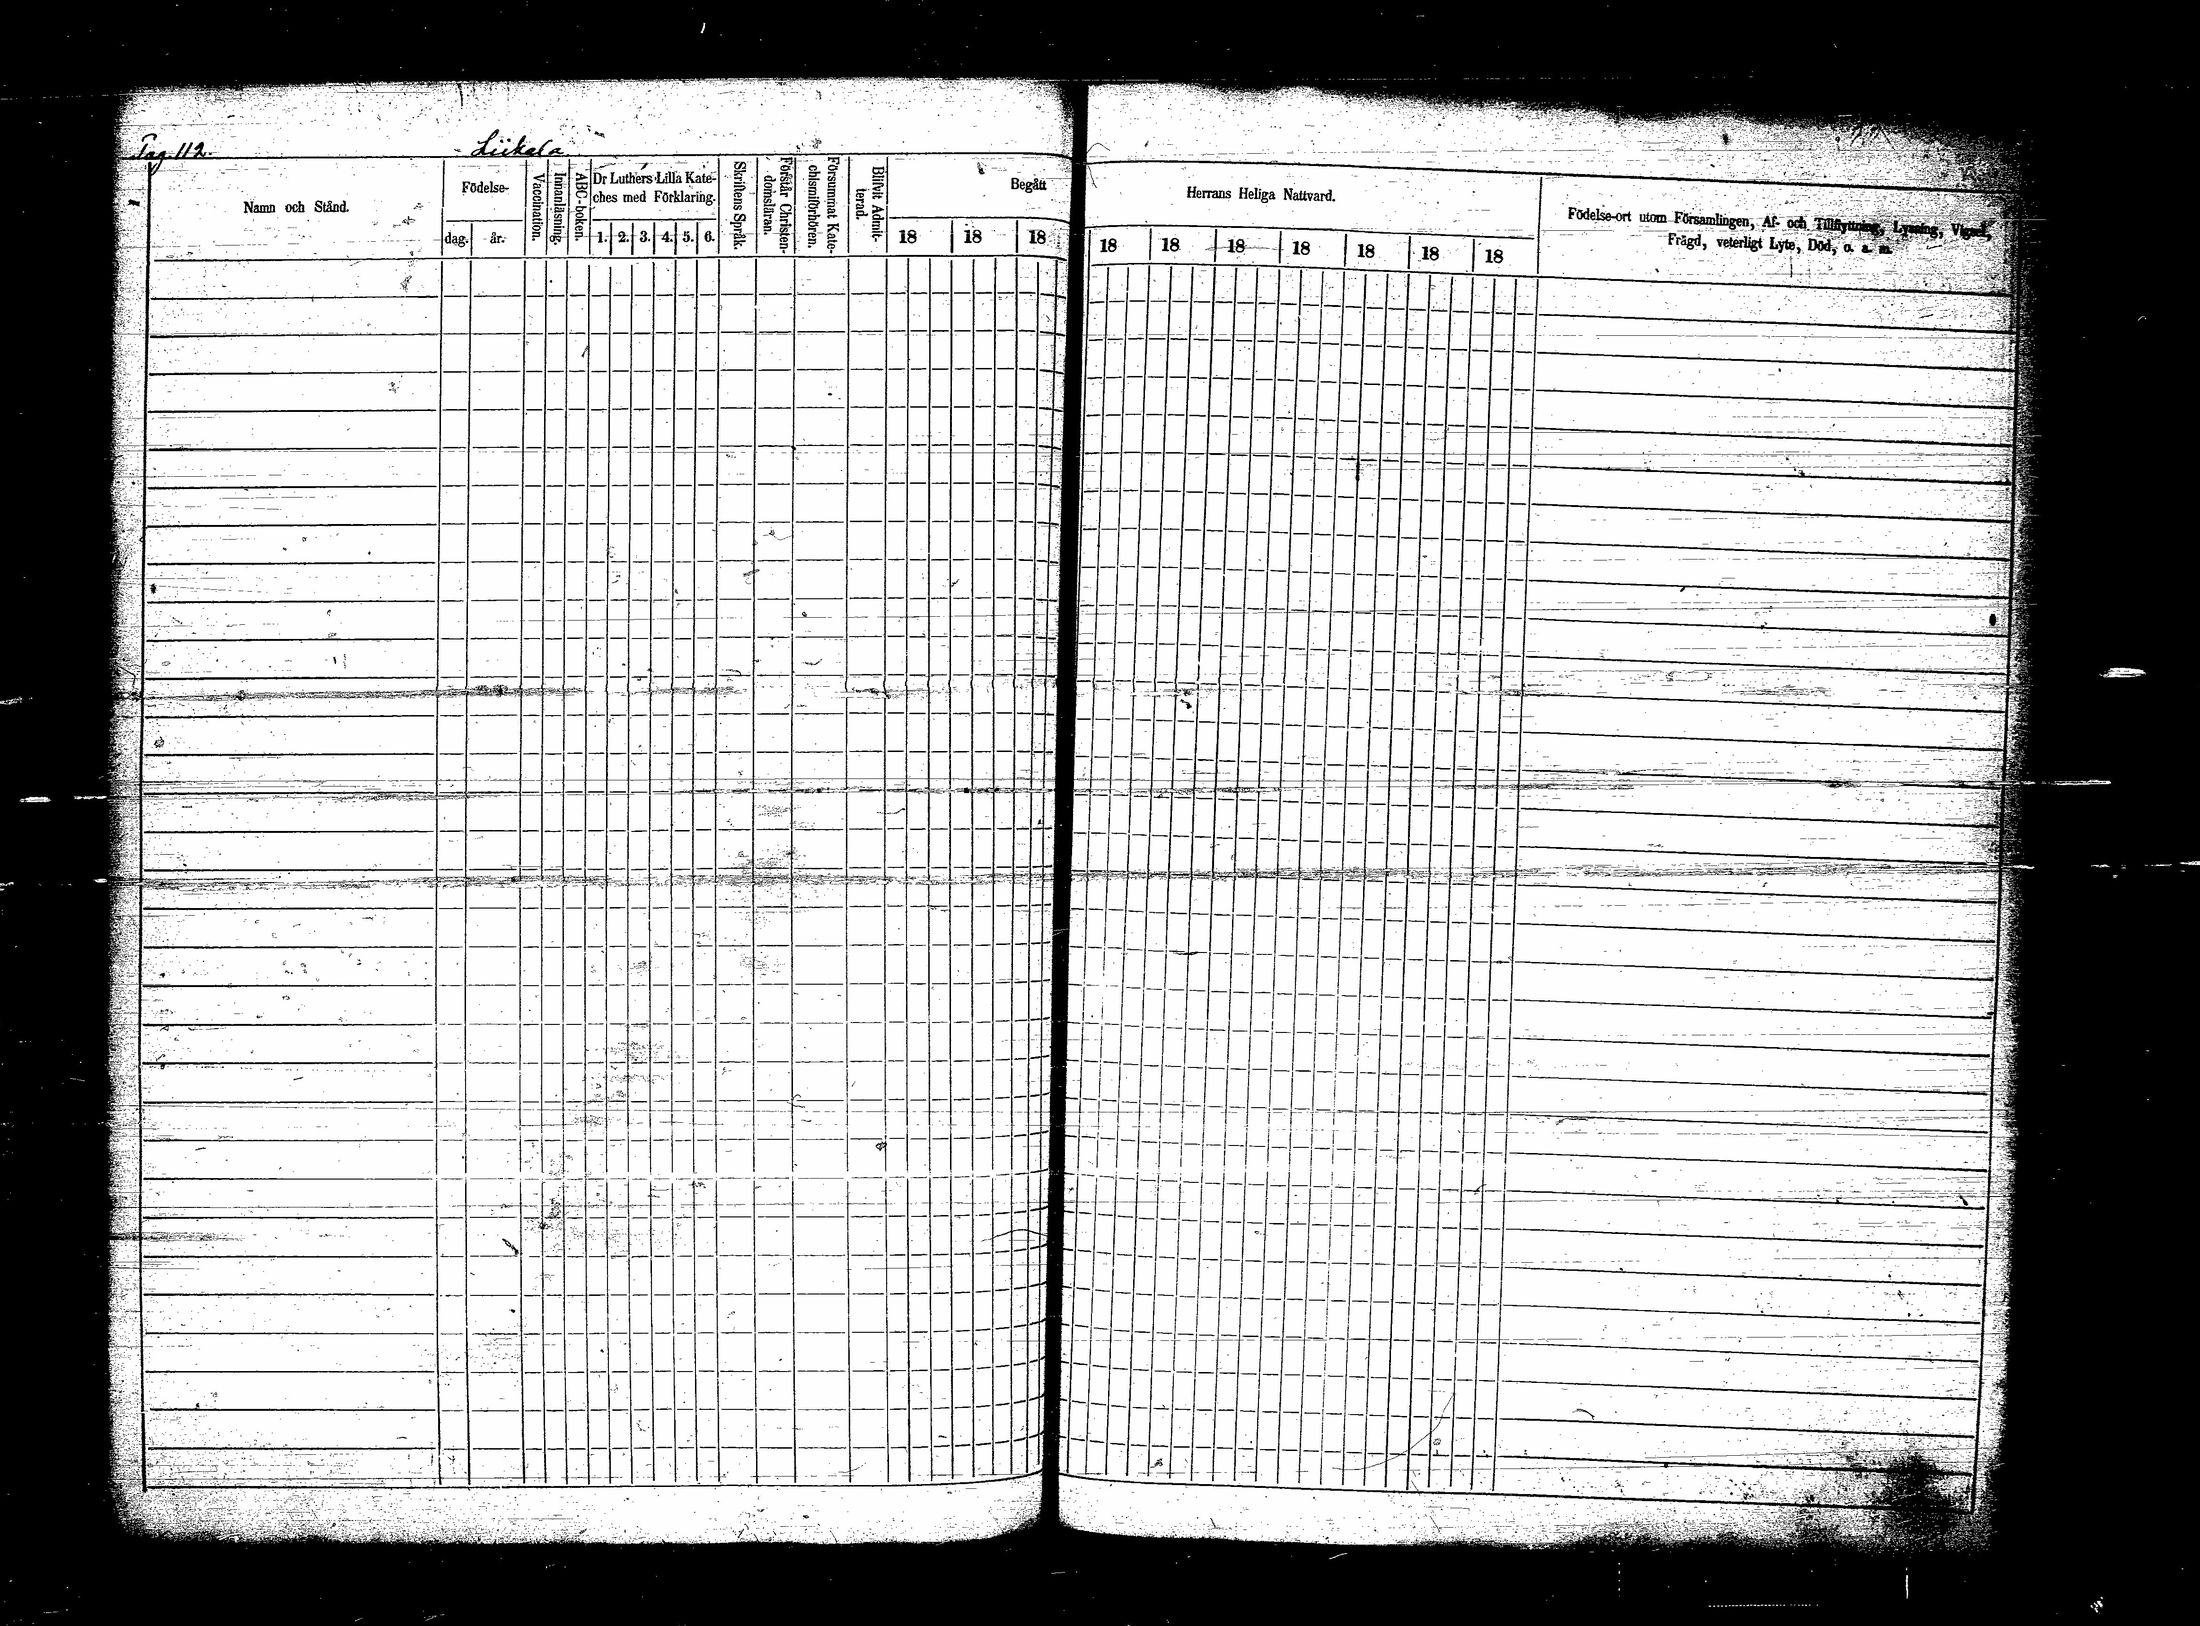 Pag 112.
Liikala
Namn och Stånd.
Födelse-
dag.
år.
Vaccination.
Innanläsning.
ABC-boken.
Dr Luthers Lilla Kate-
ches med Förklaring.
1. 2. 3. 4. 5. 6.
Skriftens Språk.
Förstår Christen-
domsläran.
Försummat Kate-
chismiförhören.
Blifvit Admit-
terad.
Begått
18 18 18
Herrans Heliga Nattvard.
18 18 18 18 18 18 18
Födelse-ort utom Församlingen, Af- och Tillflyttning, Lysning, Vigsel,
Frägd, veterligt Lyte, Död, o. s. m.